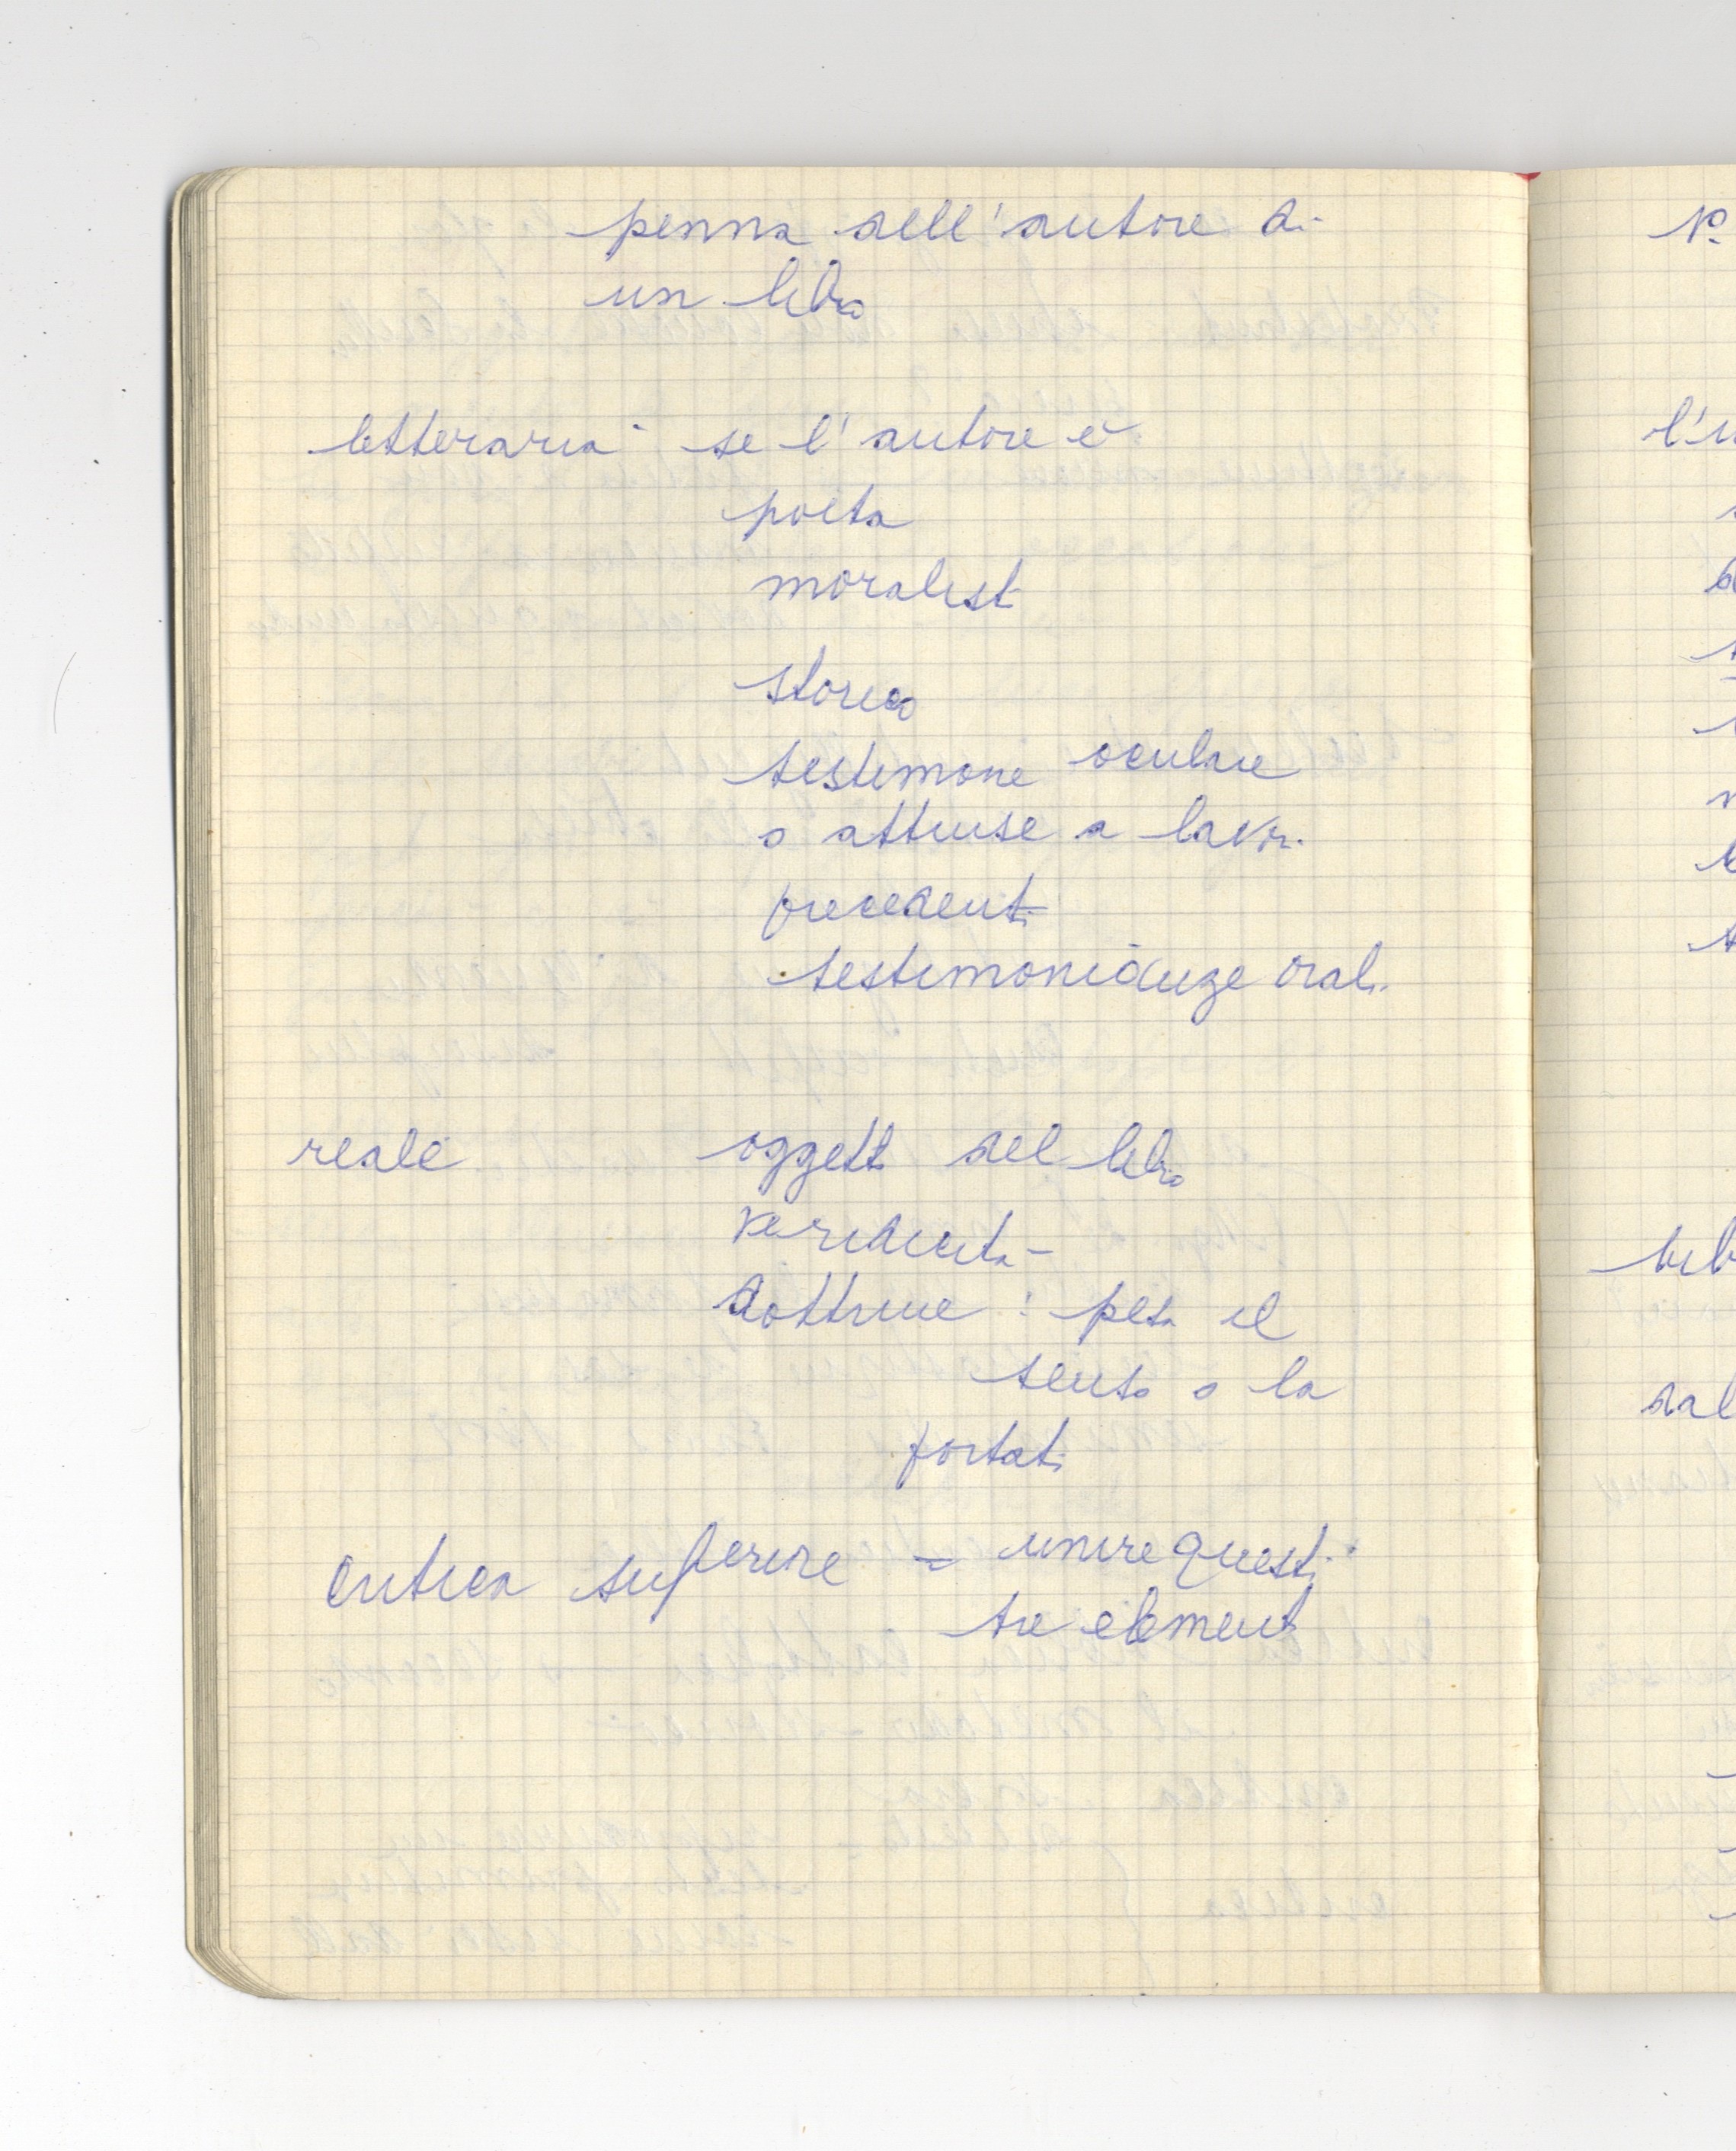 penna dell'autore di
un libro
letteraria - se l'autore è
poeta
moralist
storico
testimone oculare
o attinse a lavori
precedenti
testimonianze orali
reale oggetti del libro
veridicità -
dottrine : pesa il
senso o la
portata
critica superiore = unire questi
tre elementi